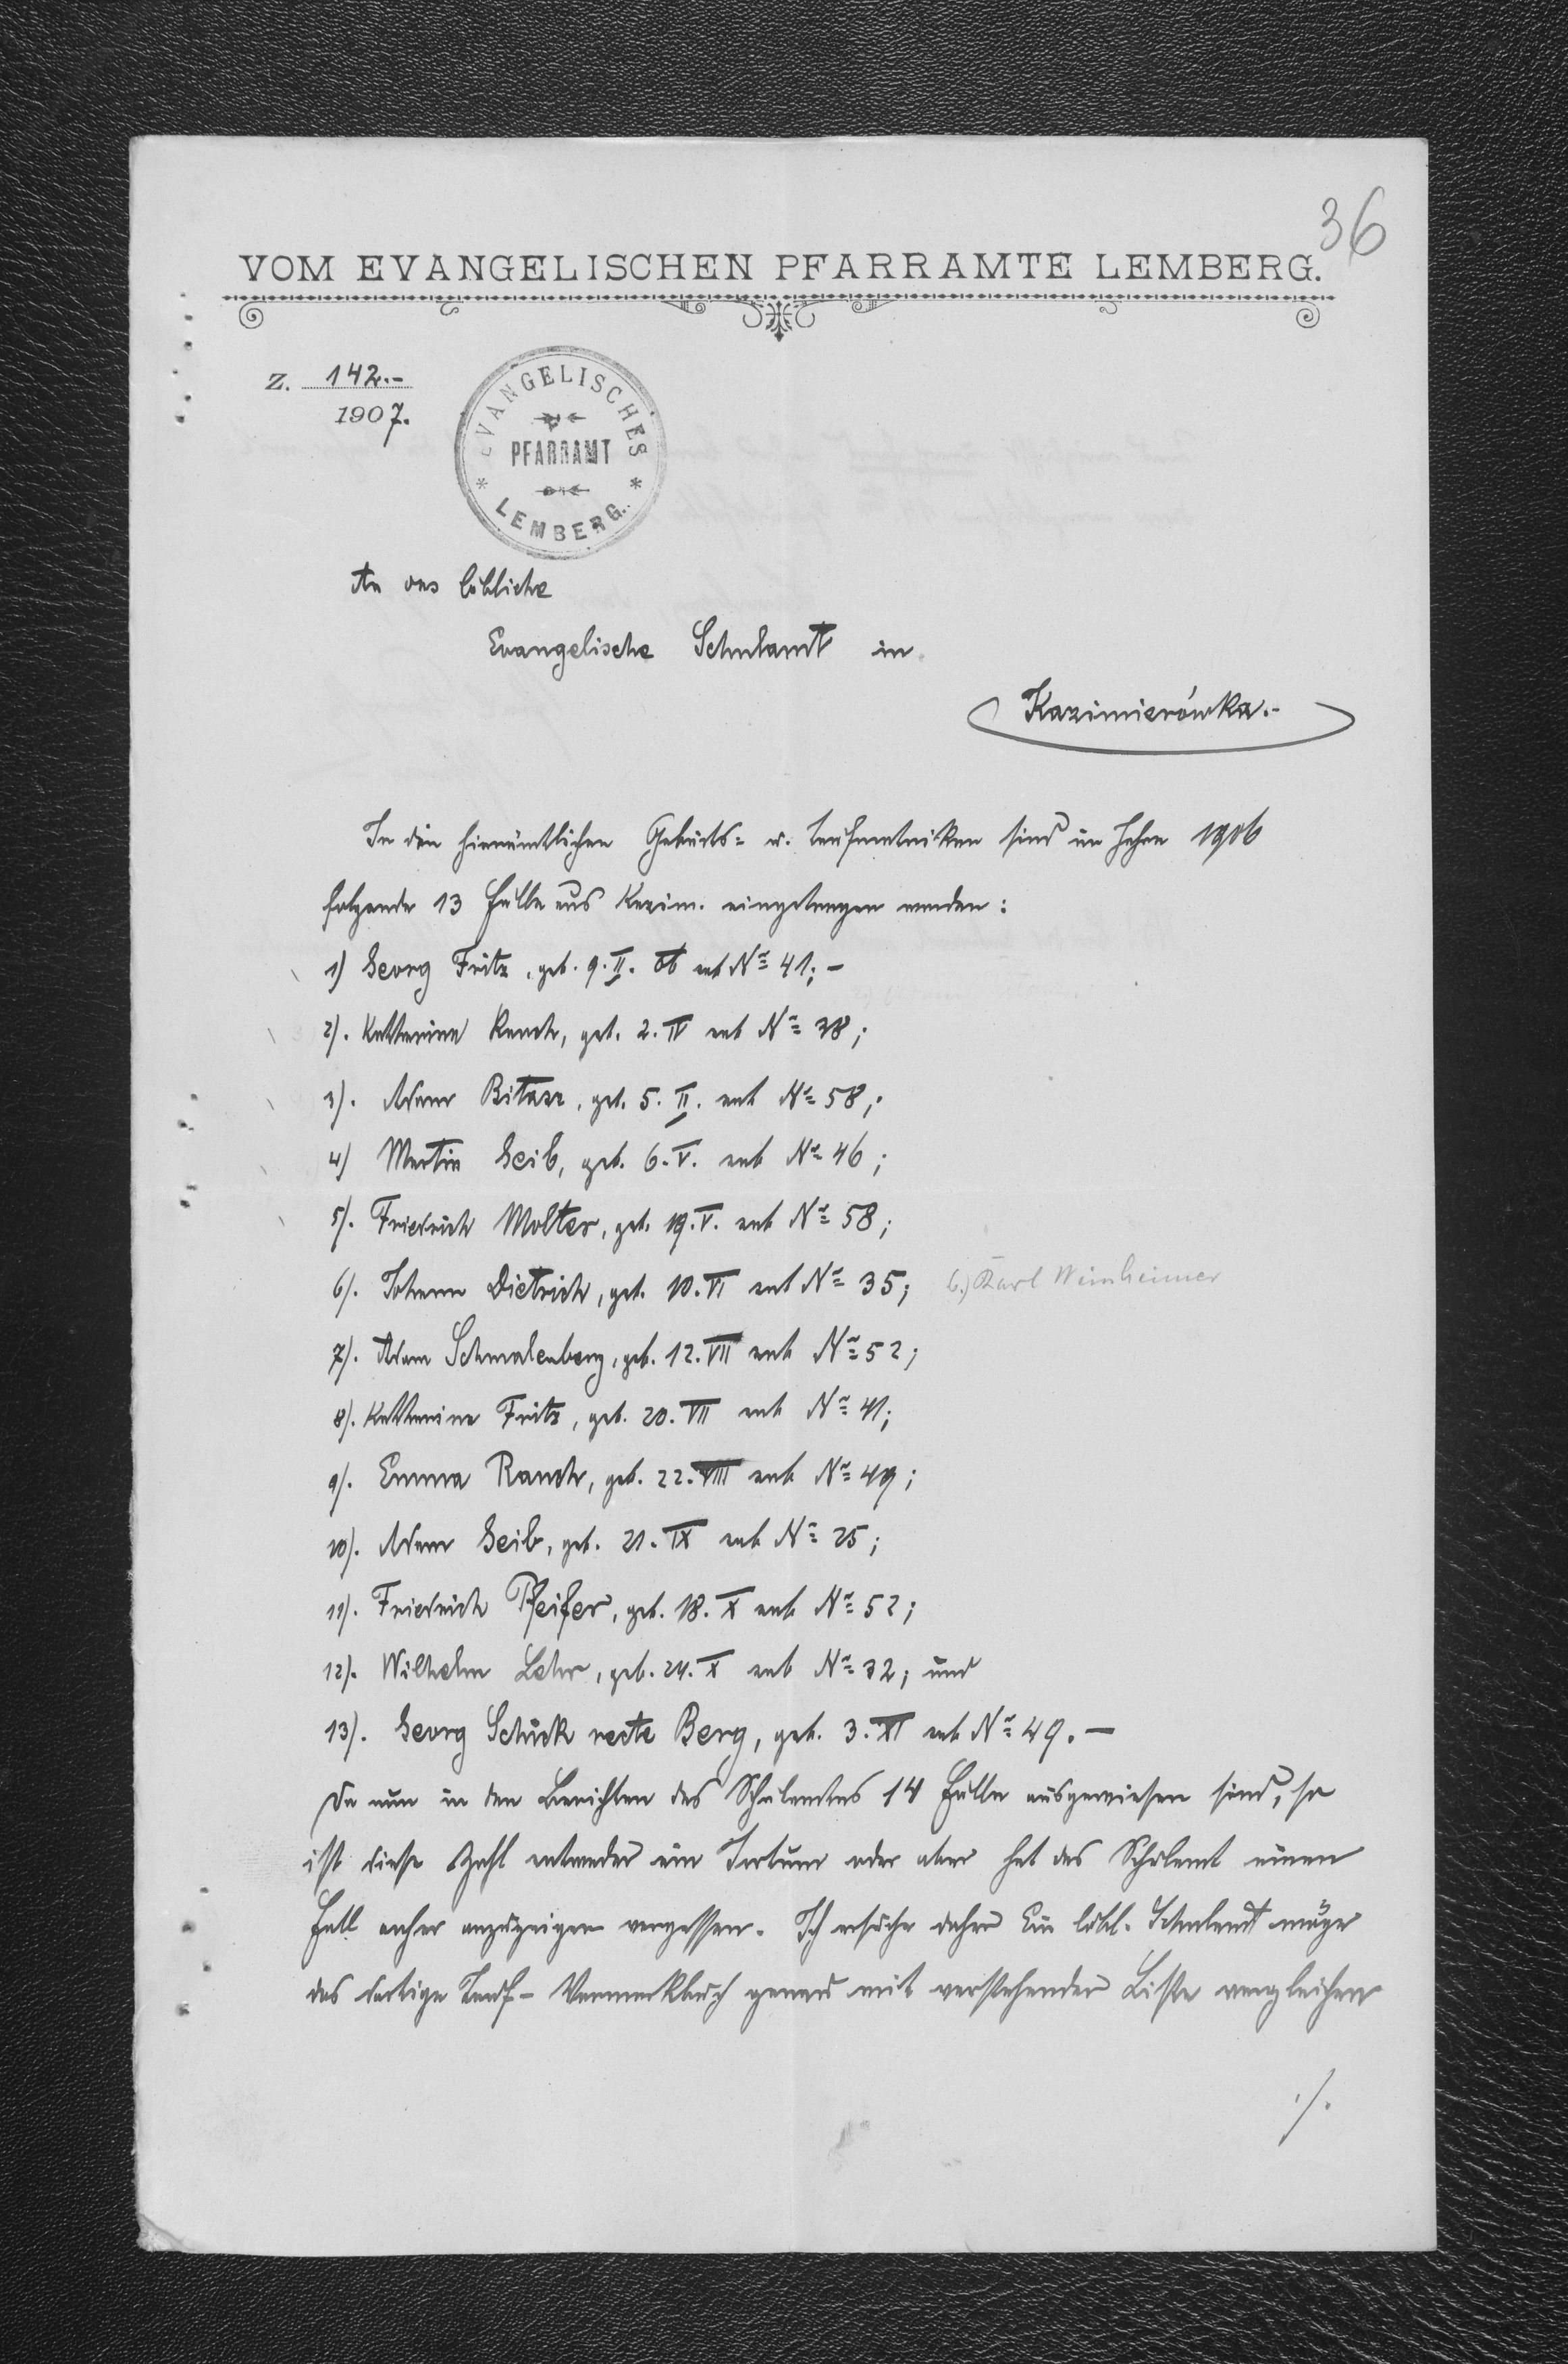 36
VOM EVANGELISCHEN PFARRAMTE LEMBERG.
Z. 142.-
1907.
EVANGELISCHES
PFARRAMT
LEMBERG.
An das löbliche
Evangelische Schulamt in
Kazimierówka.-
In die hierämtlichen Geburts- u. Taufmatriken sind im Jahre 1906
folgende 13 Fälle aus Kazim. eingetragen worden:
1) Georg Fritz, geb. 9. II. 06 sub No 41; -
2). Katharina Rauch, geb. 2. IV sub No 38;
3). Adam Bitasz, geb. 5. II. sub No 58;
4) Martin Geib, geb. 6. V. sub No 46;
5). Friedrich Molter, geb. 19. V. sub No 58;
6). Johann Dietrich, geb. 10. VI sub No 35; 6.) Karl Weinheimer
7). Adam Schmalenberg, geb. 12. VII sub No 52;
8). Katharina Fritz, geb. 20. VII sub No 41;
9). Emma Rauch, geb. 22. VIII sub No 49;
10). Adam Geib, geb. 21. IX sub No 25;
11). Friedrich Pfeifer, geb. 18. X sub No 52;
12). Wilhelm Lehr, geb. 24. X sub No 32; und
13). Georg Schück recte Berg, geb. 3. XI sub No 49. -
Da nun in den Berichten des Schulamtes 14 Fälle ausgewiesen sind, so
ist diese Zahl entweder ein Irrtum oder aber hat das Schulamt einen
Fall anher anzuzeigen vergessen. Ich ersuche daher Ein löbl. Schulamt möge
das dortige Tauf-Vormerkbuch genau mit vorstehender Liste vergleichen
./.